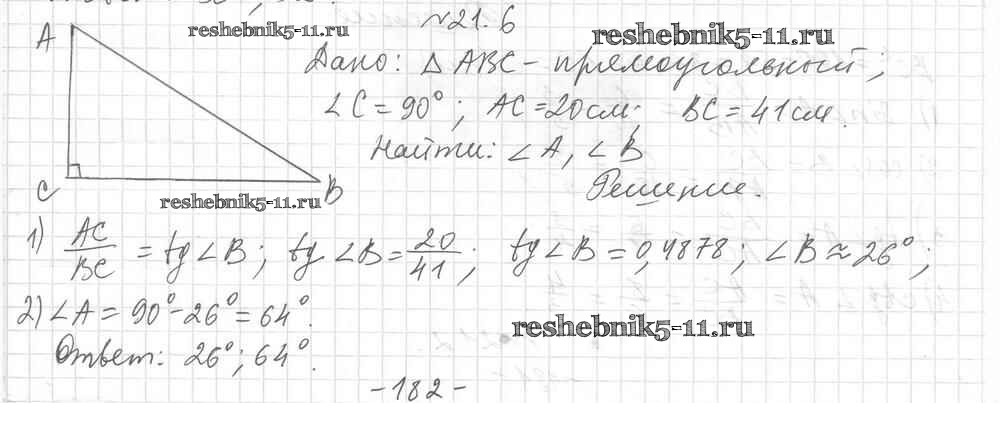 №21.6
reshebnik5-11.ru
reshebnik5-11.ru
A
Дано: △ ABC - прямоугольный;
∠C = 90°; AC = 20см; BC = 41см.
Найти: ∠A, ∠B
Решение.
C
B
reshebnik5-11.ru
1) AC/BC = tg∠B; tg∠B = 20/41; tg∠B = 0,4878; ∠B ≈ 26°;
2) ∠A = 90° - 26° = 64°.
reshebnik5-11.ru
Ответ: 26°; 64°.
- 182 -